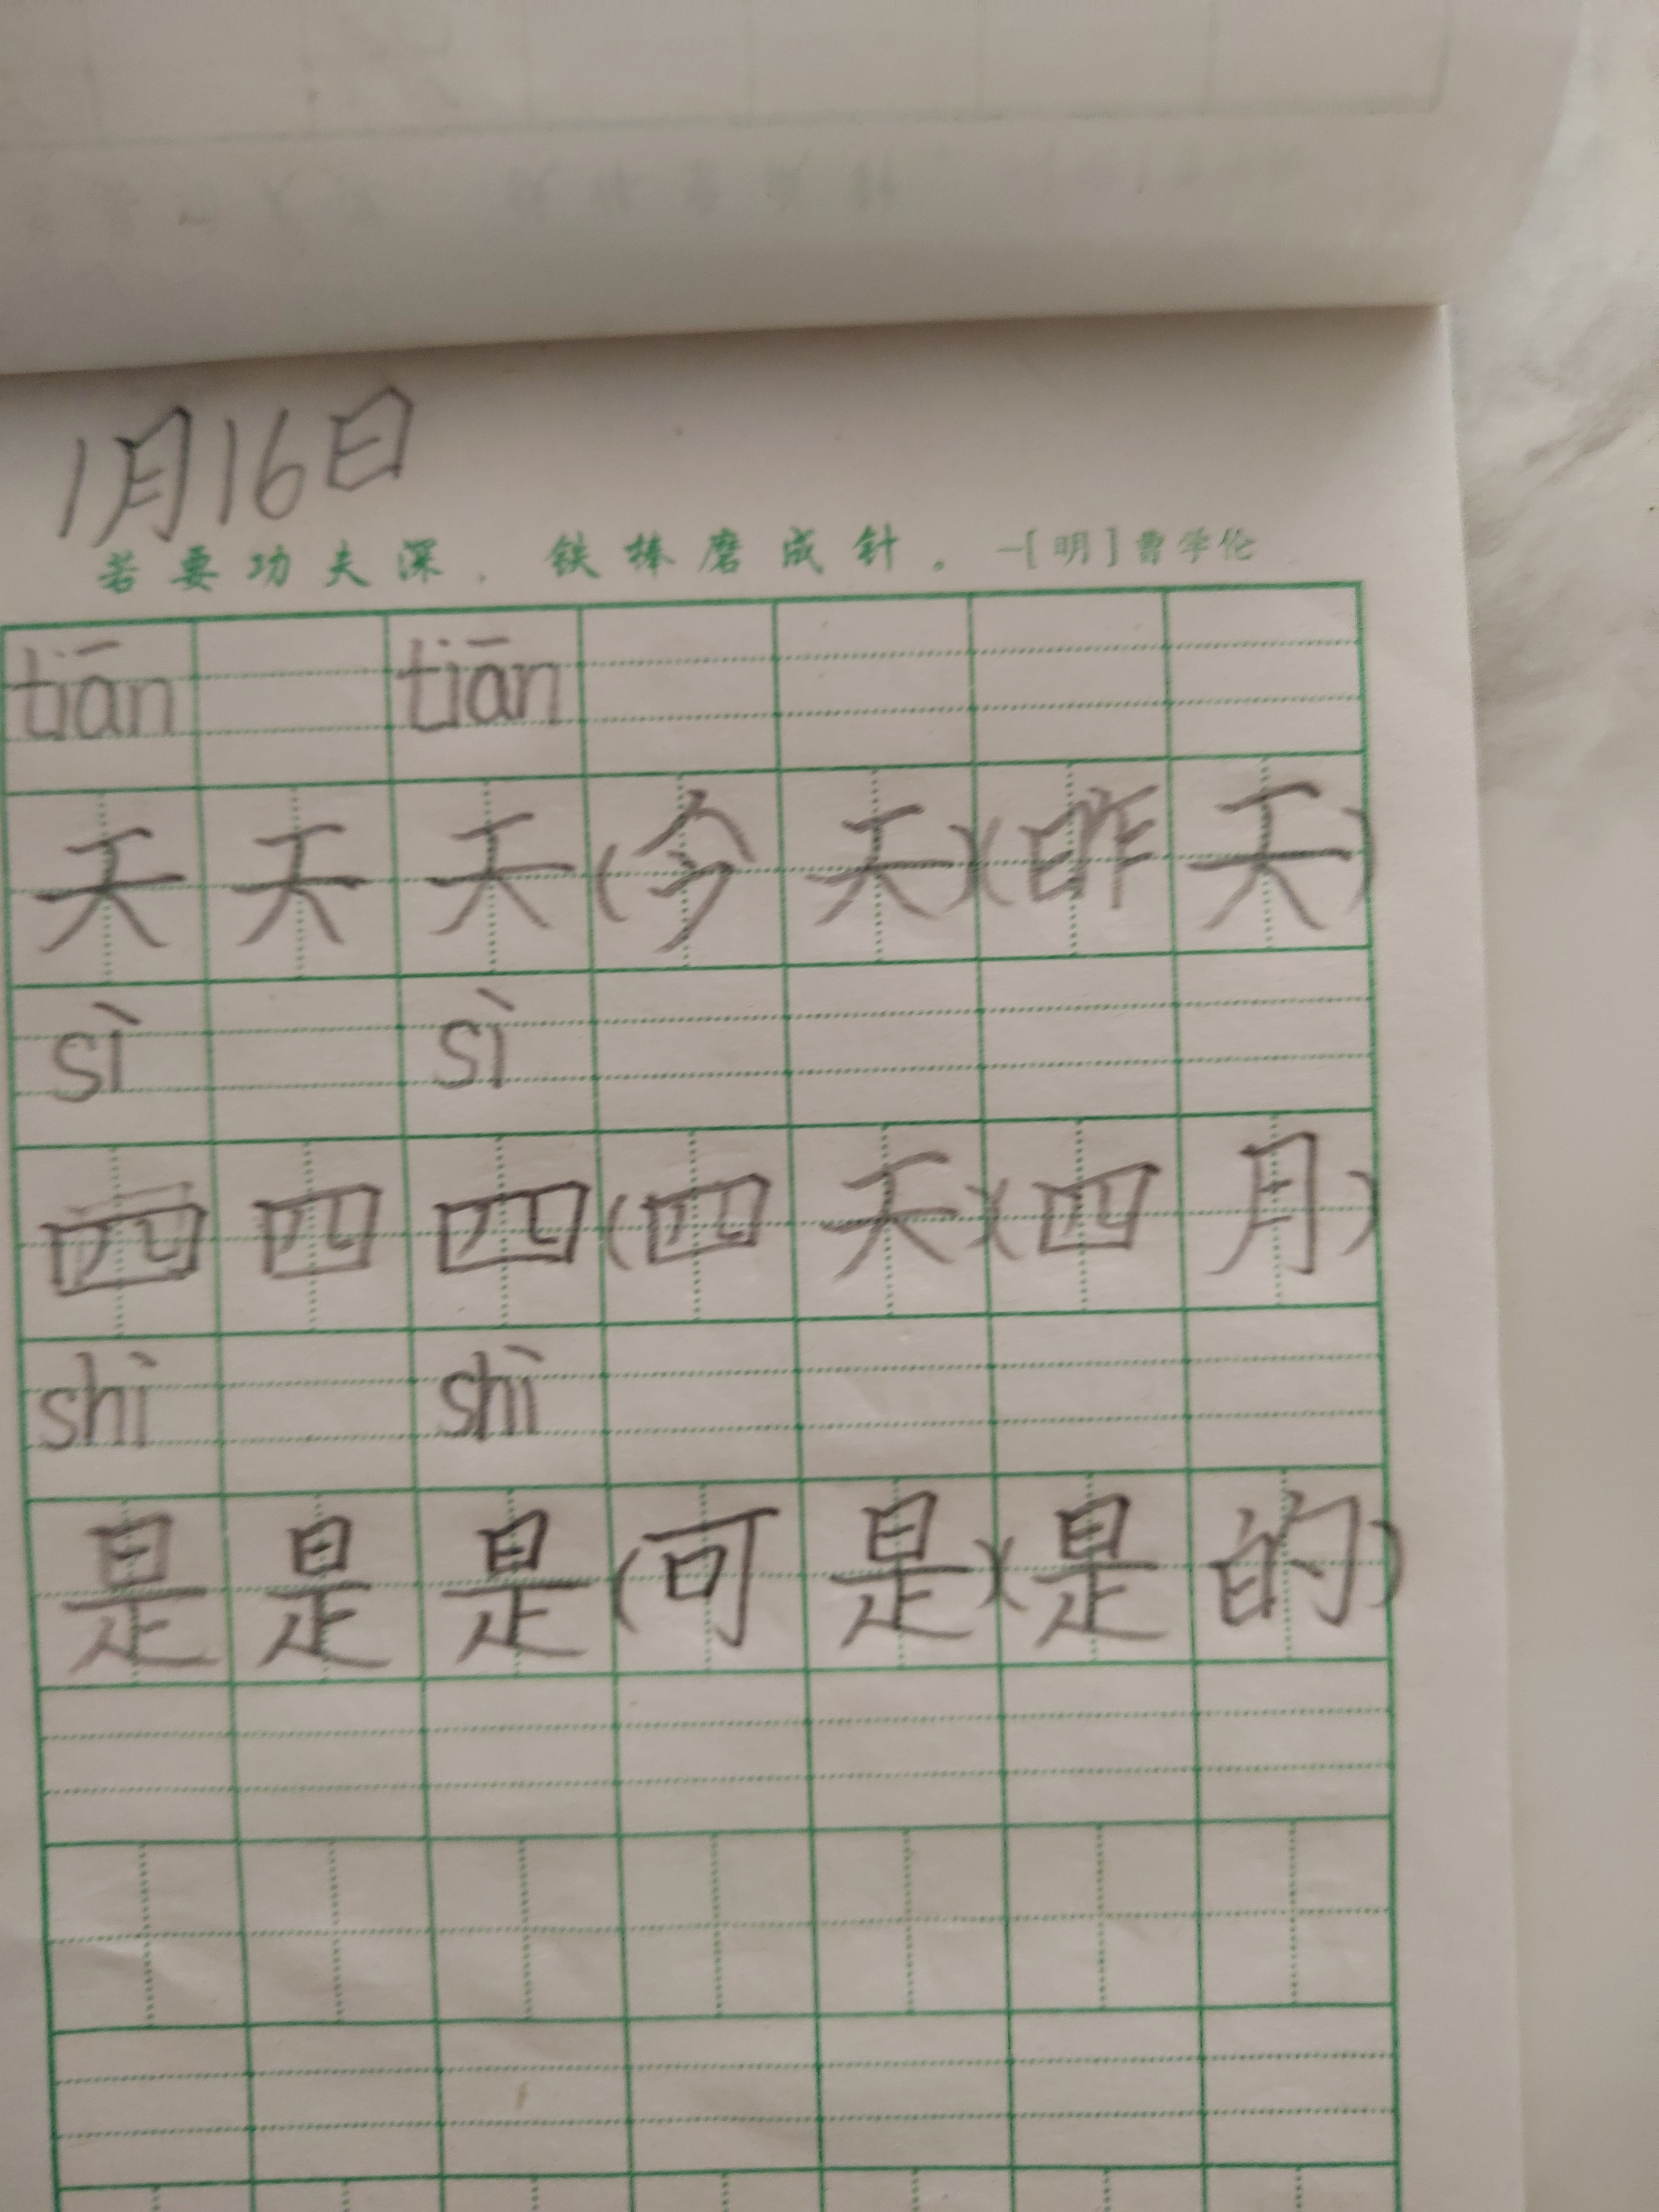 1月16日
若要功夫深，铁棒磨成针。—[明]曹学伦
tiān tiān
天天天(今天)(昨天)
sì sì
四四四(四天)(四月)
shì shì
是是是(可是)(是的)